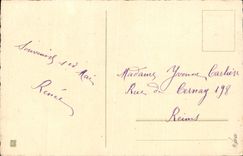 Souvenir 1er Mai
Renée
Madame Yvonne Cartier
Rue de Cernay 198
Reims